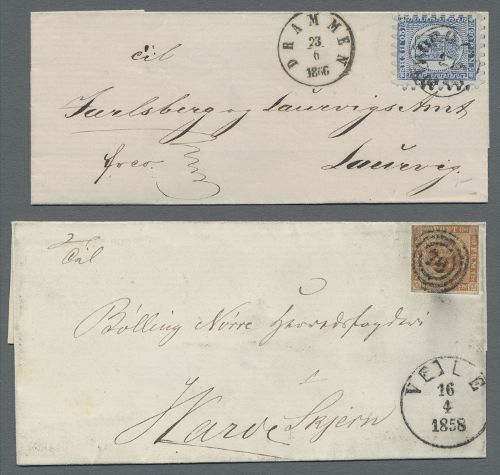 til
DRAMMEN
23
6
1866
Jarlsberg og Laurvigs Amt
frco.
Laurvig.
Til
Bølling Nørre Herredsfogderi
Skjern
VEILE
16
4
1858